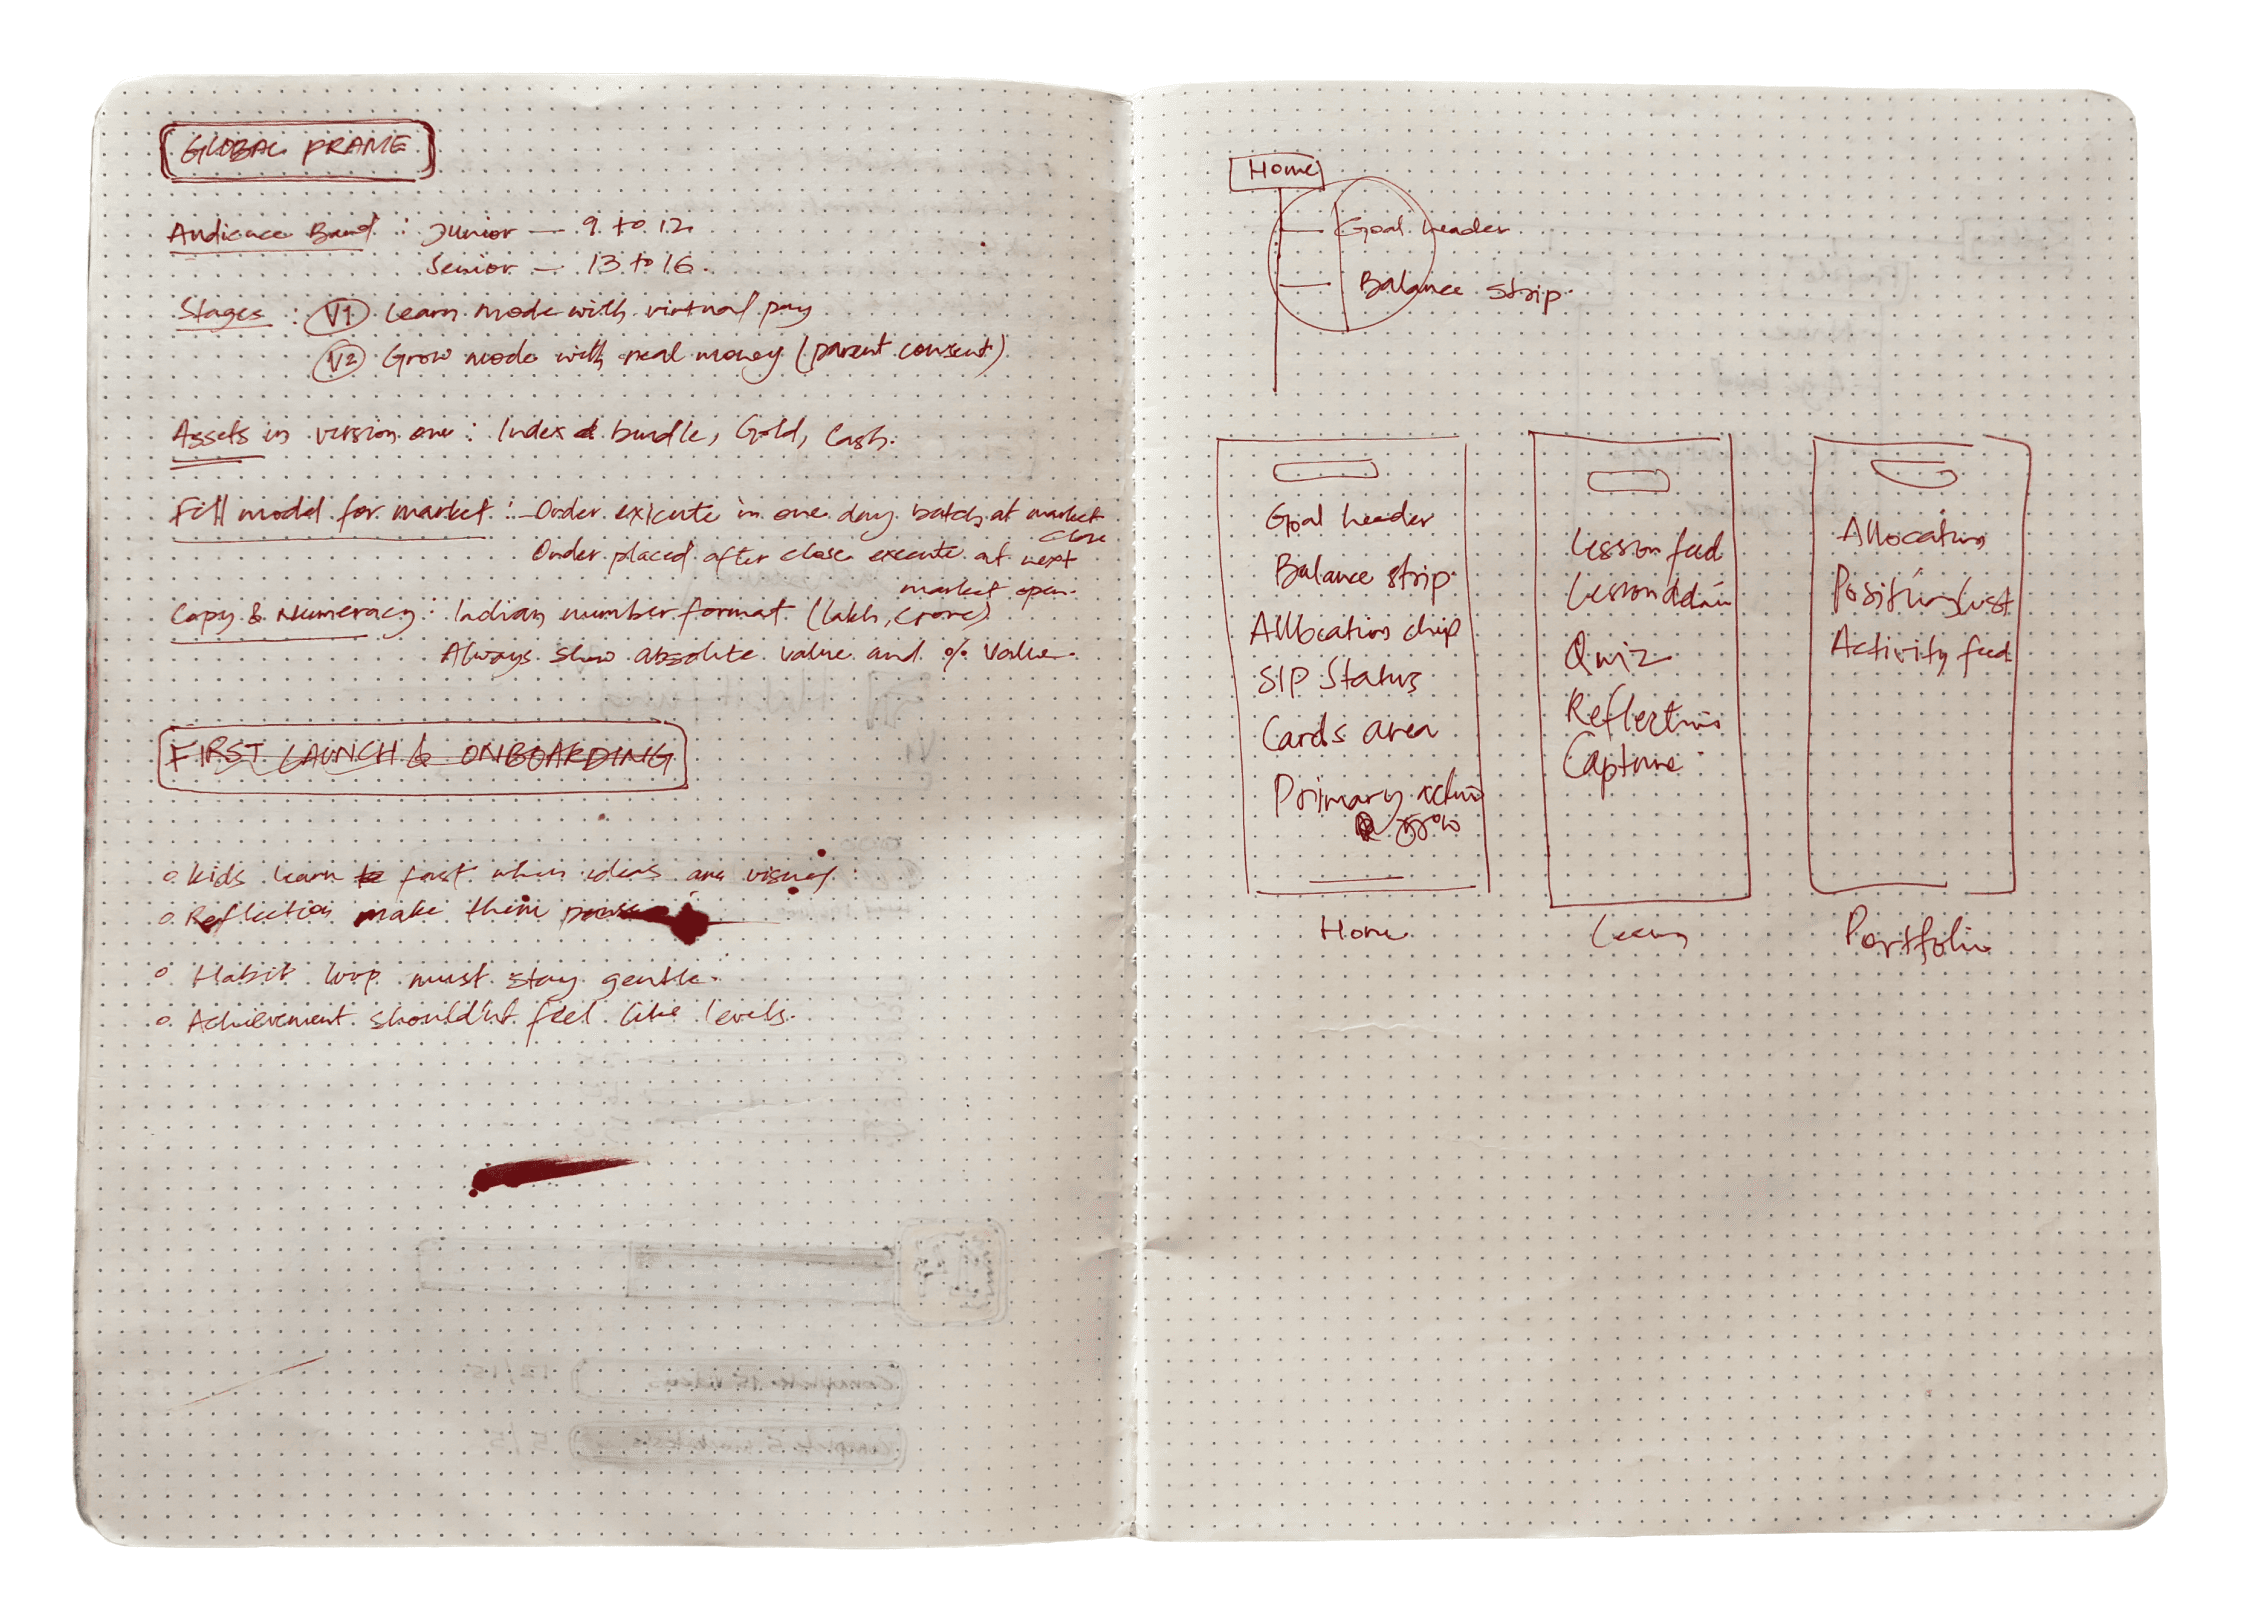 GLOBAL FRAME
Audience Band : Junior — 9 to 12
Senior — 13 to 16
Stages : V1 Learn mode with virtual pay
V2 Grow mode with real money (parent consent)
Assets in version one : Index bundle, Gold, Cash.
Fill model for market : - Order execute in one day batch at market
close
Order placed after close execute at next
market open.
Copy & Numeracy : Indian number format (lakh, crore)
Always show absolute value and % value.
FIRST LAUNCH & ONBOARDING
o Kids learn fast when ideas are visual
o Reflection make them
o Habit loop must stay gentle.
o Achievement should'nt feel like levels.
Home
Goal header
Balance strip
Goal header
Balance strip
Allocation chip
SIP Status
Cards area
Primary action
Home
Lesson feed
Lesson detail
Quiz
Reflection
Capture
Learn
Allocation
Position list
Activity feed
Portfolio